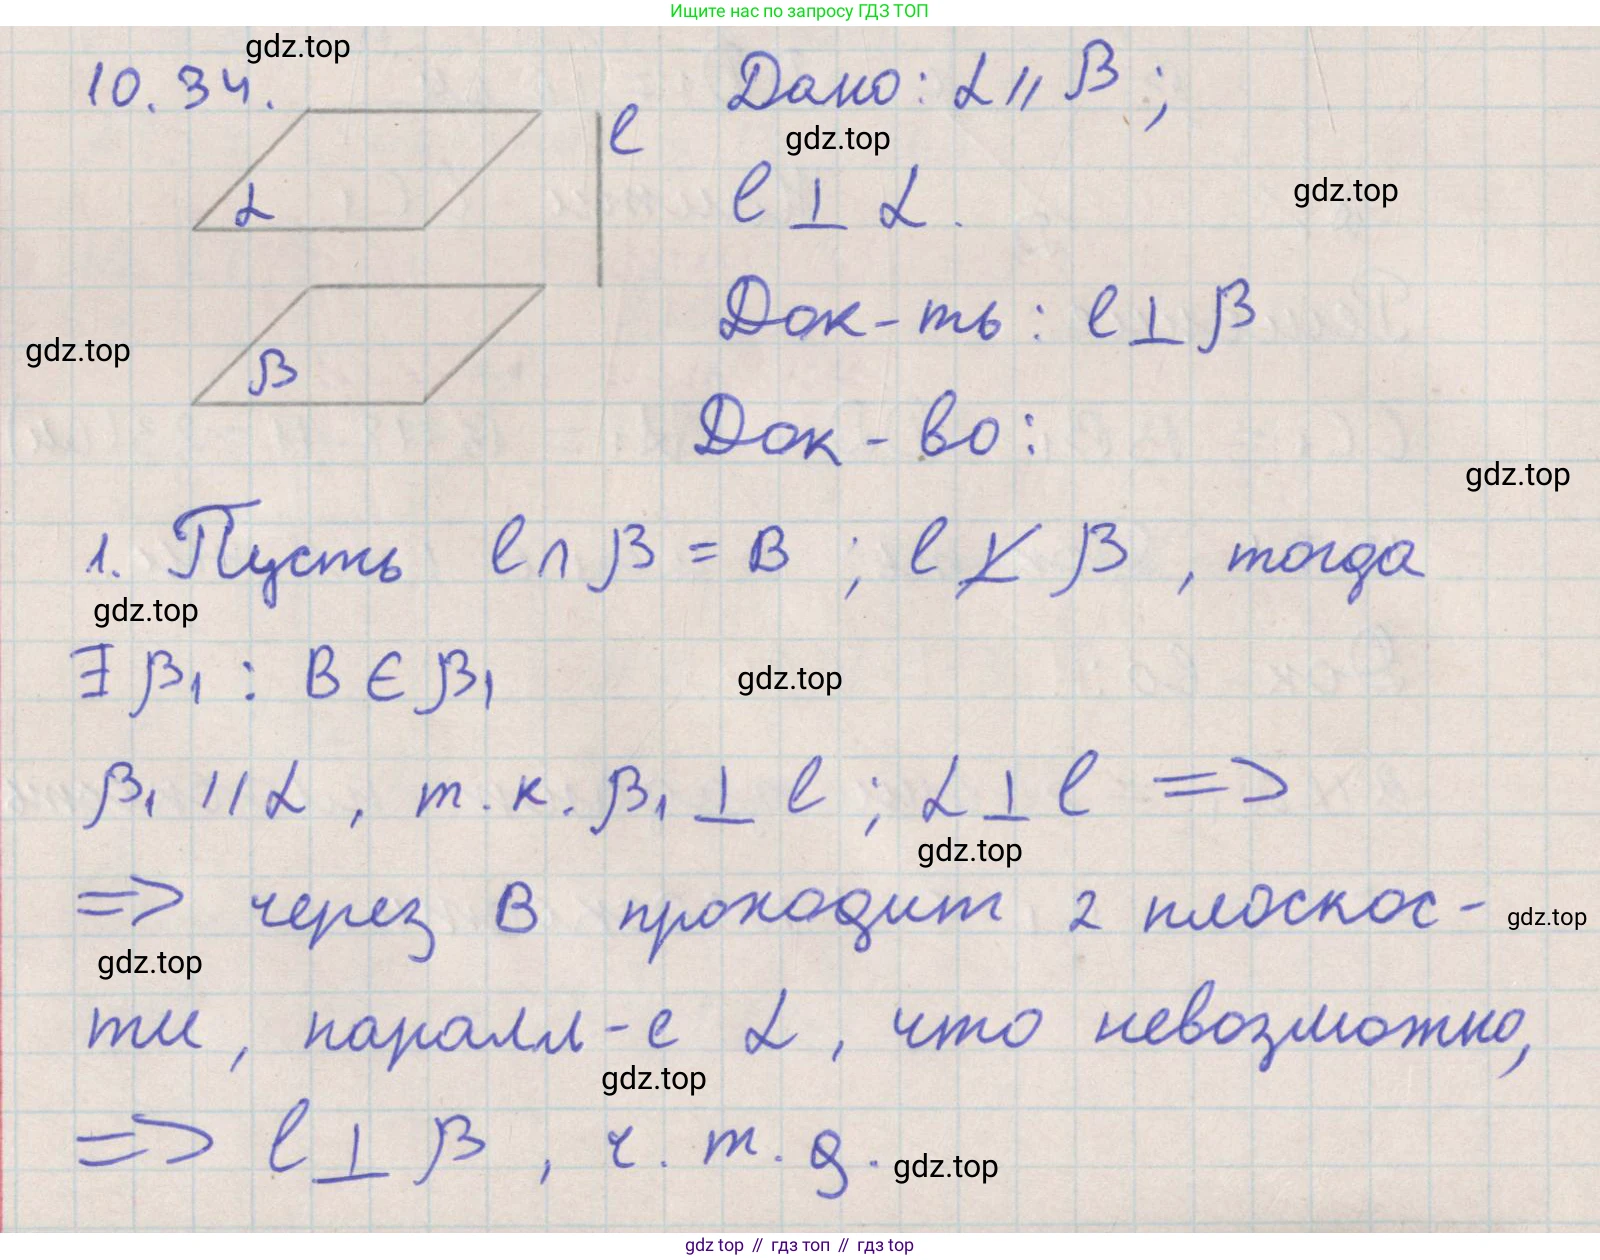 Ищите нас по запросу ГДЗ ТОП
gdz.top
10.34.
Дано: α || β;
l
gdz.top
l ⊥ α.
gdz.top
α
Док-ть: l ⊥ β
gdz.top
β
Док-во:
gdz.top
1. Пусть l ∩ β = B ; l ⊥̸ β , тогда
gdz.top
∃ β₁ : B ∈ β₁
gdz.top
β₁ || α , т.к. β₁ ⊥ l ; α ⊥ l =>
gdz.top
=> через B проходит 2 плоскос-
gdz.top
gdz.top
ти, паралл-е α , что невозможно,
gdz.top
=> l ⊥ β , ч.т.д.
gdz.top
gdz top // гдз топ // gdz top